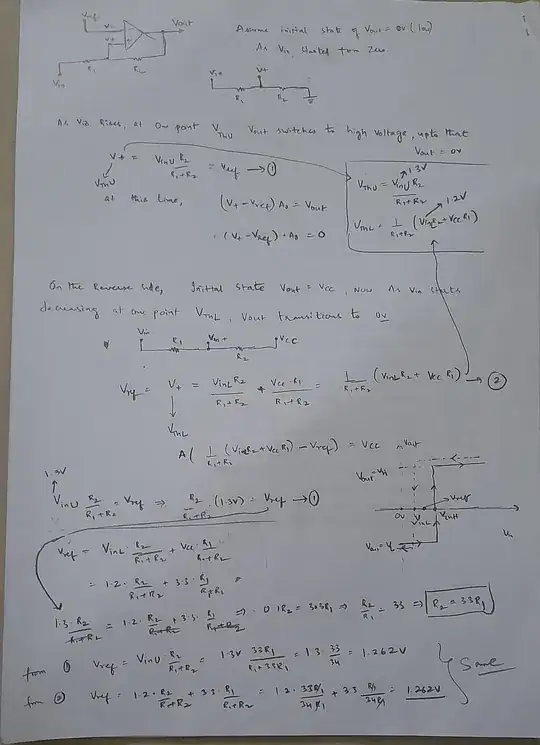 Vref
Vout
V-
V+
R1 R2
Vin
Assume initial state of Vout = 0V (low)
As Vin started from zero
Vin V+
R1 R2
As Vin Rises, at one point VThU Vout switches to high voltage, upto that
Vout = 0V
V+ = VinU R2 / R1+R2 = Vref → ①
VThU
at this time, (V+ - Vref) A0 = Vout
(V+ - Vref) · A0 = 0
1.3V
VThU = VinU R2 / R1+R2
1.2V
VThL = 1 / R1+R2 (VinL R2 + VCC R1)
On the Reverse side, Initial state Vout = VCC, Now As Vin starts
decreasing at one point VThL, Vout transitions to 0V
Vin Vin+ VCC
R1 R2
Vref = V+ = VinL R2 / R1+R2 + VCC · R1 / R1+R2 = 1 / R1+R2 (VinL R2 + VCC R1) → ②
VThL
A ( 1 / R1+R2 (VinL R2 + VCC R1) - Vref ) = VCC
Vout
1.3V
VinU R2 / R1+R2 = Vref ⇒ R2 / R1+R2 · (1.3V) = Vref → ①
Vout = VH
Vref
0V VinL VinH
Vin
Vref = VinL · R2 / R1+R2 + VCC · R1 / R1+R2
= 1.2 · R2 / R1+R2 + 3.3 · R1 / R1+R2 =
1.3 · R2 / R1+R2 = 1.2 · R2 / R1+R2 + 3.3 · R1 / R1+R2 ⇒ 0.1R2 = 3.3R1 ⇒ R2 / R1 = 33 ⇒ R2 = 33R1
from ① Vref = VinU · R2 / R1+R2 = 1.3V 33R1 / R1+33R1 = 1.3 · 33 / 34 = 1.262V
from ② Vref = 1.2 · R2 / R1+R2 + 3.3 · R1 / R1+R2 = 1.2 · 33R1 / 34R1 + 3.3 R1 / 34R1 = 1.262V
Same